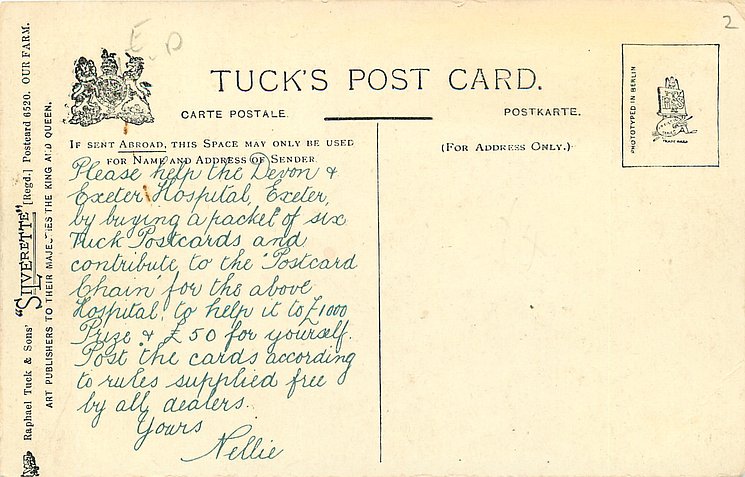 2
E.D
TUCK'S POST CARD.
CARTE POSTALE.
POSTKARTE.
IF SENT ABROAD, THIS SPACE MAY ONLY BE USED
FOR NAME AND ADDRESS OF SENDER.
(FOR ADDRESS ONLY.)
PHOTOTYPED IN BERLIN
TRADE MARK
Please help the Devon &
Exeter Hospital, Exeter,
by buying a packet of six
Tuck Postcards and
contribute to the 'Postcard
Chain' for the above
Hospital, to help it to £1000
Prize & £50 for yourself.
Post the cards according
to rules supplied free
by all dealers.
Yours
Nellie
Raphael Tuck & Sons' "SILVERETTE" [Regd.] Postcard 6520. OUR FARM.
ART PUBLISHERS TO THEIR MAJESTIES THE KING AND QUEEN.